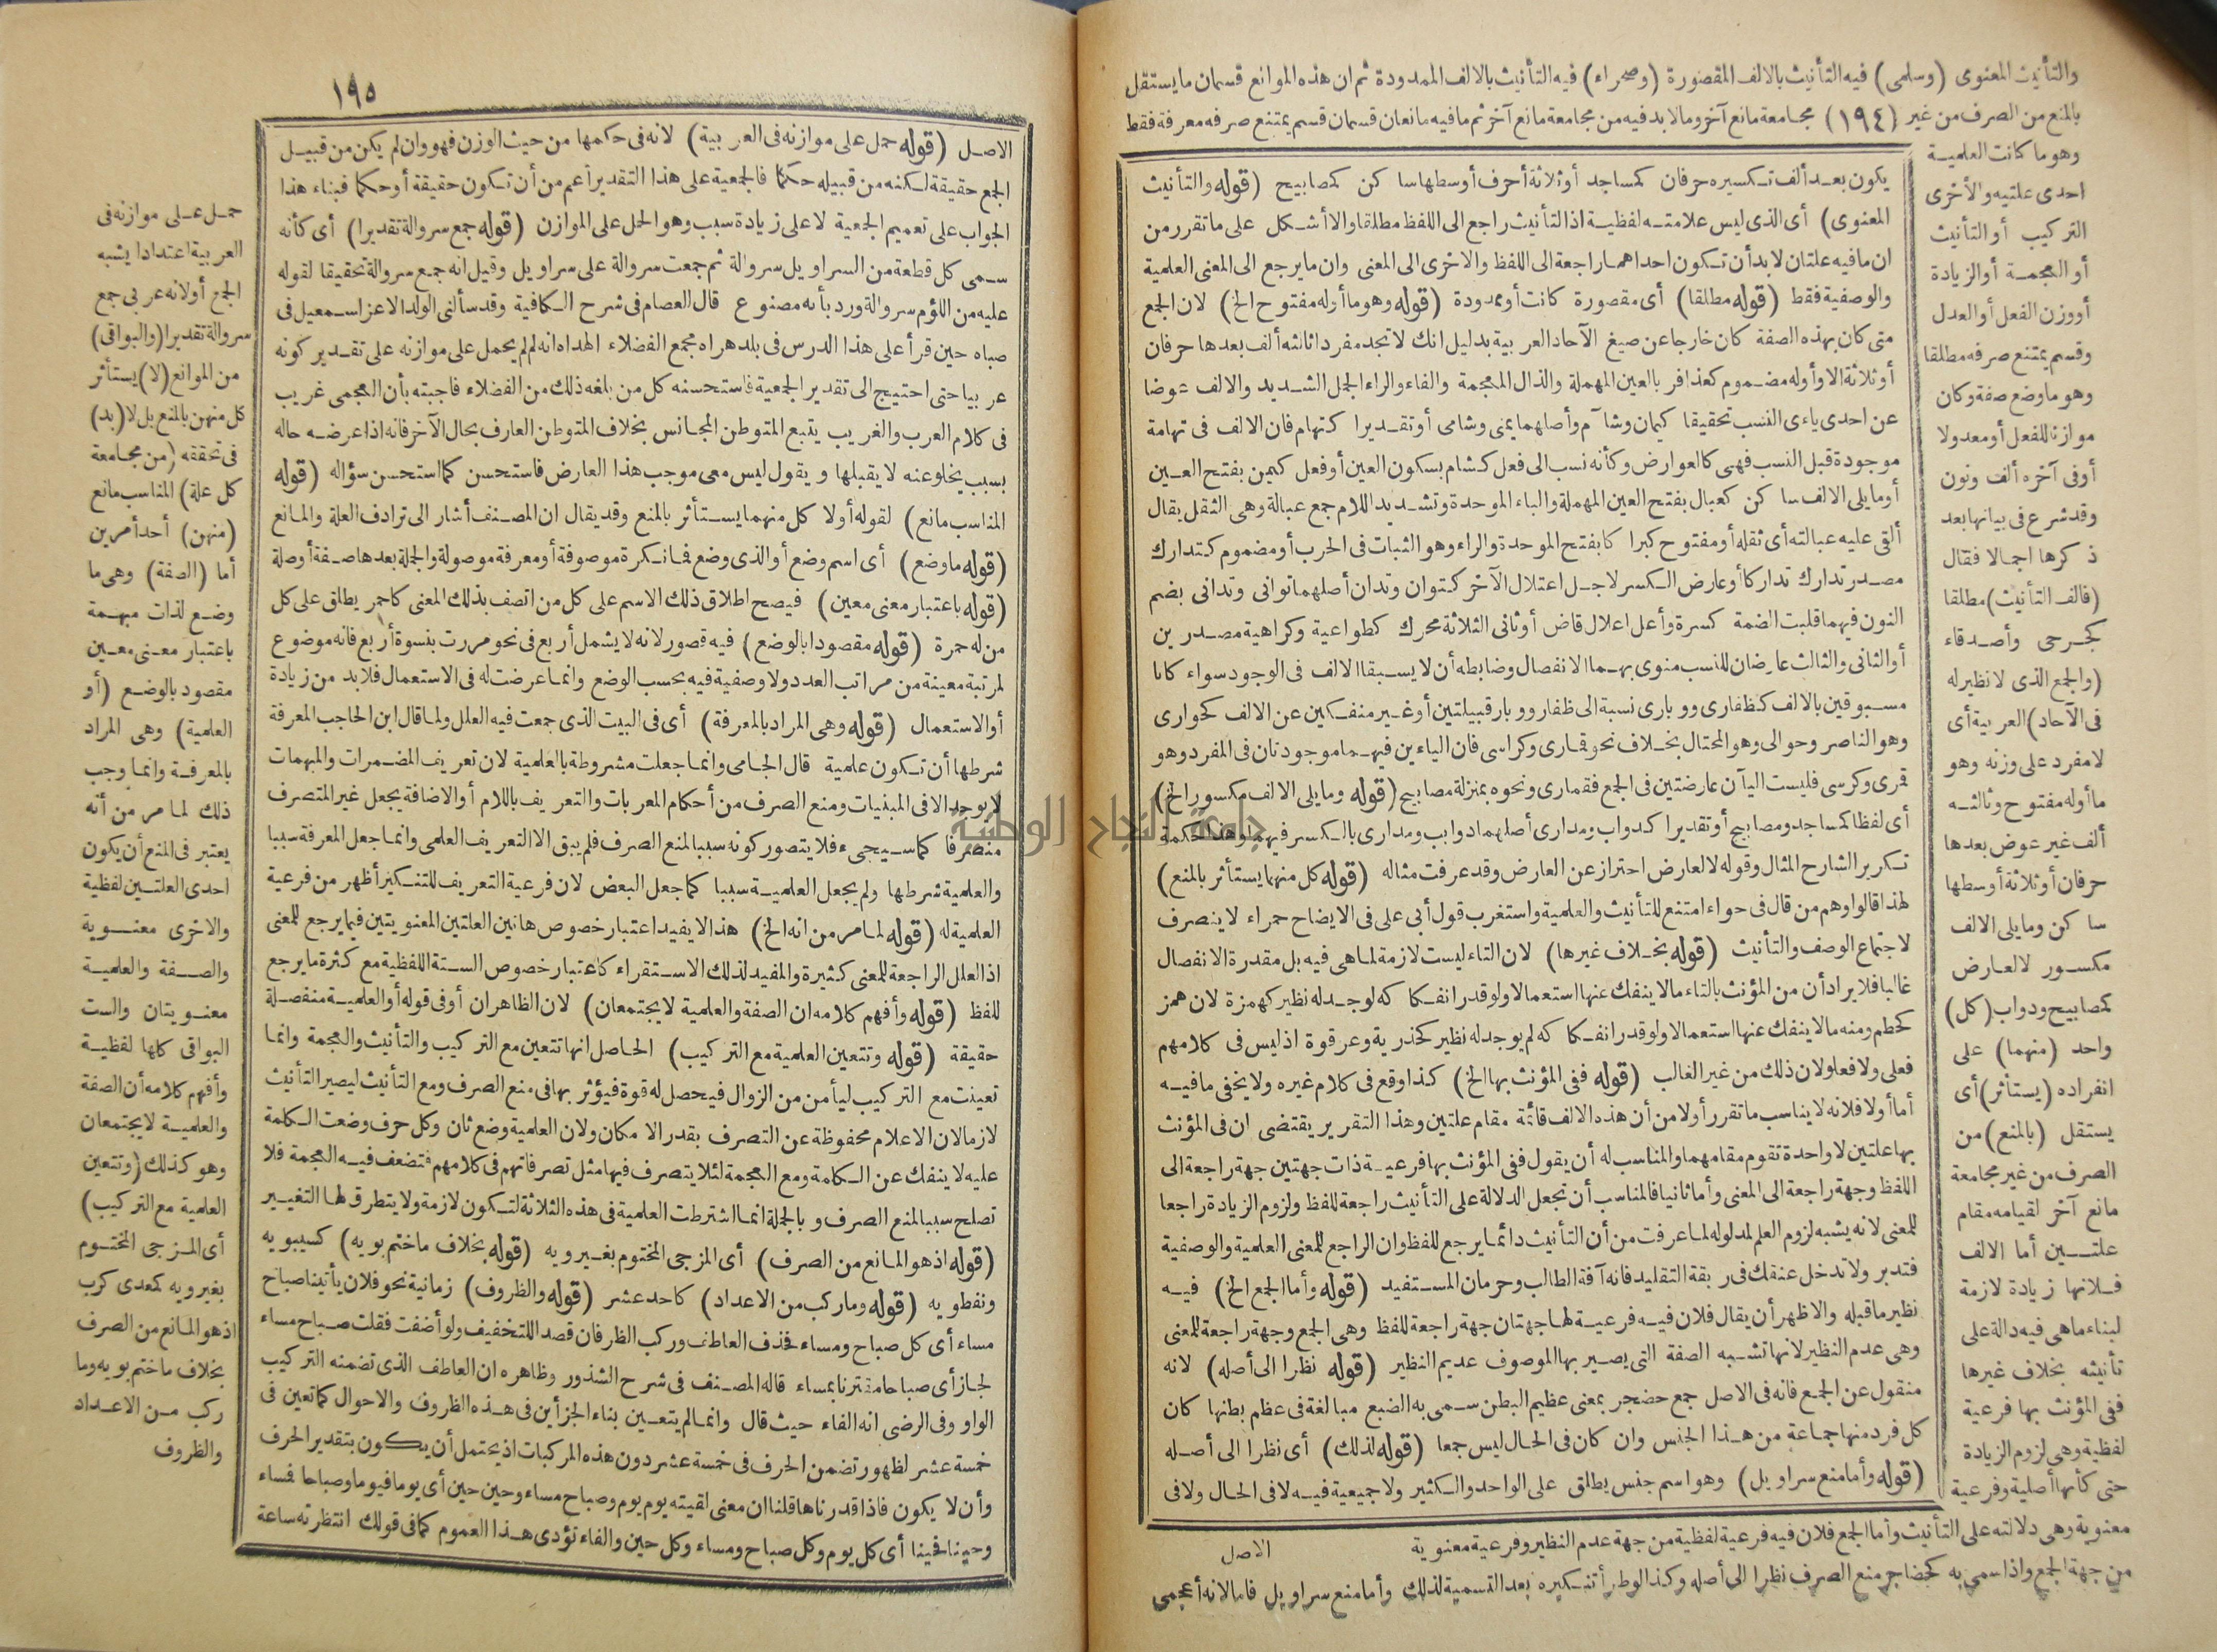 والتأنيث المعنوى (وسلمى) فيه التأنيث بالالف المقصورة (وصحراء) فيه التأنيث بالالف الممدودة ثم ان هذه الموانع قسمان ما يستقل
بالمنع من الصرف من غير (١٩٤) مجامعة مانع آخر وما لا بد فيه من مجامعة مانع آخر ثم ما فيه مانعان قسمان قسم يمتنع صرفه معرفة فقط
وهو ما كانت العلمية
احدى علتيه والأخرى
التركيب أو التأنيث
أو العجمة أو الزيادة
أو وزن الفعل أو العدل
وقسم يمتنع صرفه مطلقا
وهو ما وضع صفة وكان
موازنا للفعل أو معدولا
أو فى آخره ألف ونون
وقد شرع فى بيانها بعد
ذكرها اجمالا فقال
(فالف التأنيث) مطلقا
كجرحى وأصدقاء
(والجمع الذى لا نظير له
فى الآحاد) العربية أى
لا مفرد على وزنه وهو
ما أوله مفتوح وثالثه
ألف غير عوض بعدها
حرفان أو ثلاثة أوسطها
ساكن وما يلى الالف
مكسور لا لعارض
كمصابيح ودواب (كل)
واحد (منهما) على
انفراده (يستأثر) أى
يستقل (بالمنع) من
الصرف من غير مجامعة
مانع آخر لقيامه مقام
علتين أما الالف
فلانها زيادة لازمة
لبناء ما هى فيه دالة على
تأنيثه بخلاف غيرها
ففى المؤنث بها فرعية
لفظية وهى لزوم الزيادة
حتى كأنها أصلية وفرعية
معنوية وهى دلالته على التأنيث وأما الجمع فلان فيه فرعية لفظية من جهة عدم النظير وفرعية معنوية
من جهة الجمع واذا سمى به كحضاجر منع الصرف نظرا الى أصله وكذا لو طرأ تنكيره بعد التسمية لذلك وأما منع سراويل فاما لانه أعجمى
يكون بعد ألف تكسيره حرفان كمساجد أو ثلاثة أحرف أوسطها ساكن كمصابيح (قوله والتأنيث
المعنوى) أى الذى ليس علامته لفظية اذ التأنيث راجع الى اللفظ مطلقا والا أشكل على ما تقرر من
ان ما فيه علتان لا بد أن تكون احداهما راجعة الى اللفظ والاخرى الى المعنى وان ما يرجع الى المعنى العلمية
والوصفية فقط (قوله مطلقا) أى مقصورة كانت أو ممدودة (قوله وهو ما أوله مفتوح الخ) لان الجمع
متى كان بهذه الصفة كان خارجا عن صيغ الآحاد العربية بدليل انك لا تجد مفردا ثالثه ألف بعدها حرفان
أو ثلاثة الا وأوله مضموم كعذافر بالعين المهملة والذال المعجمة والفاء والراء الجمل الشديد والالف عوضا
عن احدى ياءى النسب تحقيقا كيمان وشآم وأصلهما يمنى وشامى أو تقديرا كتهام فان الالف فى تهامة
موجودة قبل النسب فهى كالعوارض وكأنه نسب الى فعل كشام بسكون العين أو فعل كيمن بفتح العين
أو ما يلى الالف ساكن كعبال بفتح العين المهملة والباء الموحدة وتشديد اللام جمع عبالة وهى الثقل يقال
ألقى عليه عبالته أى ثقله أو مفتوح كبراكا بفتح الموحدة والراء وهو الثبات فى الحرب أو مضموم كتدارك
مصدر تدارك تداركا أو عارض الكسر لاجل اعتلال الآخر كتوان وتدان أصلهما توانى وتدانى بضم
النون فيهما قلبت الضمة كسرة وأعل اعلال قاض أو ثانى الثلاثة محرك كطواعية وكراهية مصدرين
أو الثانى والثالث عارضان للنسب منوى بهما الانفصال وضابطه أن لا يسبقا الالف فى الوجود سواء كانا
مسبوقين بالالف كظفارى ووبارى نسبة الى ظفار ووبار قبيلتين أو غير منفكين عن الالف كحوارى
وهو الناصر وحوالى وهو المحتال بخلاف نحو قمارى وكراسى فان الياءين فيهما موجودتان فى المفرد وهو
قمرى وكرسى فليست اليآن عارضتين فى الجمع فقمارى ونحوه بمنزلة مصابيح (قوله وما يلى الالف مكسور الخ)
أى لفظا كمساجد ومصابيح أو تقديرا كدواب ومدارى أصلهما دوابب ومدارى بالكسر فيهما وهذا حكمة
تكرير الشارح المثال وقوله لا لعارض احتراز عن العارض وقد عرفت مثاله (قوله كل منهما يستأثر بالمنع)
لهذا قالوا وهم من قال فى حواء امتنع للتأنيث والعلمية واستغرب قول أبى على فى الايضاح حمراء لا ينصرف
لاجتماع الوصف والتأنيث (قوله بخلاف غيرها) لان التاء ليست لازمة لما هى فيه بل مقدرة الانفصال
غالبا فلا يراد أن من المؤنث بالتاء ما لا ينفك عنها استعمالا ولو قدر انفكاكه لوجد له نظير كهمزة لان همز
كحطم ومنه ما لا ينفك عنها استعمالا ولو قدر انفكاكه لم يوجد له نظير كحذرية وعرقوة اذ ليس فى كلامهم
فعلى ولا فعلو لان ذلك من غير الغالب (قوله ففى المؤنث بها الخ) كذا وقع فى كلام غيره ولا يخفى ما فيه
أما أولا فلانه لا يناسب ما تقرر أولا من أن هذه الالف قائمة مقام علتين وهذا التقرير يقتضى ان فى المؤنث
بها علتين لا واحدة تقوم مقامهما والمناسب له أن يقول ففى المؤنث بها فرعية ذات جهتين جهة راجعة الى
اللفظ وجهة راجعة الى المعنى وأما ثانيا فالمناسب أن تجعل الدلالة على التأنيث راجعة للفظ ولزوم الزيادة راجعا
للمعنى لانه يشبه لزوم العلم لمدلوله لما عرفت من أن التأنيث دائما يرجع للفظ وان الراجع للمعنى العلمية والوصفية
فتدبر ولا تدخل عنقك فى ربقة التقليد فانه آفة الطالب وحرمان المستفيد (قوله وأما الجمع الخ) فيه
نظير ما قبله والاظهر أن يقال فلان فيه فرعية لها جهتان جهة راجعة للفظ وهى الجمع وجهة راجعة للمعنى
وهى عدم النظير لانها تشبه الصفة التى يصير بها الموصوف عديم النظير (قوله نظرا الى أصله) لانه
منقول عن الجمع فانه فى الاصل جمع حضجر بمعنى عظيم البطن سمى به الضبع مبالغة فى عظم بطنها كان
كل فرد منها جماعة من هذا الجنس وان كان فى الحال ليس جمعا (قوله لذلك) أى نظرا الى أصله
(قوله وأما منع سراويل) وهو اسم جنس يطلق على الواحد والكثير ولا جمعية فيه لا فى الحال ولا فى
الاصل
١٩٥
الاصل (قوله حمل على موازنه فى العربية) لانه فى حكمها من حيث الوزن فهو وان لم يكن من قبيل
الجمع حقيقة لكنه من قبيله حكما فالجمعية على هذا التقدير أعم من أن تكون حقيقة أو حكما فبناء هذا
الجواب على تعميم الجمعية لا على زيادة سبب وهو الحمل على الموازن (قوله جمع سروالة تقديرا) أى كأنه
سمى كل قطعة من السراويل سروالة ثم جمعت سروالة على سراويل وقيل انه جمع سروالة تحقيقا لقوله
عليه من اللؤم سروالة ورد بأنه مصنوع قال العصام فى شرح الكافية وقد سألنى الولد الاعز اسمعيل فى
صباه حين قرأ على هذا الدرس فى بلد هراه مجمع الفضلاء الهداه انه لم لم يحمل على موازنه على تقدير كونه
عربيا حتى احتيج الى تقدير الجمعية فاستحسنه كل من بلغه ذلك من الفضلاء فاجبته بأن العجمى غريب
فى كلام العرب والغريب يتبع المتوطن المجانس بخلاف المتوطن العارف بحال الآخر فانه اذا عرضه حاله
بسبب يخلو عنه لا يقبلها ويقول ليس معى موجب هذا العارض فاستحسن كما استحسن سؤاله (قوله
المناسب مانع) لقوله أولا كل منهما يستأثر بالمنع وقد يقال ان المصنف أشار الى ترادف العلة والمانع
(قوله ما وضع) أى اسم وضع أو الذى وضع فما نكرة موصوفة أو معرفة موصولة والجملة بعدها صفة أو صلة
(قوله باعتبار معنى معين) فيصح اطلاق ذلك الاسم على كل من اتصف بذلك المعنى كاحمر يطلق على كل
من له حمرة (قوله مقصودا بالوضع) فيه قصور لانه لا يشمل أربع فى نحو مررت بنسوة أربع فانه موضوع
لمرتبة معينة من مراتب العدد ولا وصفية فيه بحسب الوضع وانما عرضت له فى الاستعمال فلا بد من زيادة
أو الاستعمال (قوله وهى المراد بالمعرفة) أى فى البيت الذى جمعت فيه العلل ولما قال ابن الحاجب المعرفة
شرطها أن تكون علمية قال الجامى وانما جعلت مشروطة بالعلمية لان تعريف المضمرات والمبهمات
لا يوجد الا فى المبنيات ومنع الصرف من أحكام المعربات والتعريف باللام أو الاضافة يجعل غير المتصرف
منصرفا كما سيجىء فلا يتصور كونه سببا لمنع الصرف فلم يبق الا التعريف العلمى وانما جعل المعرفة سببا
والعلمية شرطها ولم يجعل العلمية سببا كما جعل البعض لان فرعية التعريف للتنكير أظهر من فرعية
العلمية له (قوله لما مر من انه الخ) هذا لا يفيد اعتبار خصوص هاتين العلتين المعنويتين فيما يرجع للمعنى
اذ العلل الراجعة للمعنى كثيرة والمفيد لذلك الاستقراء كاعتبار خصوص الستة اللفظية مع كثرة ما يرجع
للفظ (قوله وأفهم كلامه ان الصفة والعلمية لا يجتمعان) لان الظاهر ان أو فى قوله أو العلمية منفصلة
حقيقة (قوله وتتعين العلمية مع التركيب) الحاصل انها تتعين مع التركيب والتأنيث والعجمة وانما
تعينت مع التركيب ليأمن من الزوال فيحصل له قوة فيؤثر بها فى منع الصرف ومع التأنيث ليصير التأنيث
لازما لان الاعلام محفوظة عن التصرف بقدر الامكان ولان العلمية وضع ثان وكل حرف وضعت الكلمة
عليه لا ينفك عن الكلمة ومع العجمة لئلا يتصرف فيها مثل تصرفاتهم فى كلامهم فتضعف فيه العجمة فلا
تصلح سببا لمنع الصرف وبالجملة انما اشترطت العلمية فى هذه الثلاثة لتكون لازمة ولا يتطرق لها التغيير
(قوله اذ هو المانع من الصرف) أى المزجى المختوم بغير ويه (قوله بخلاف ما ختم بويه) كسيبويه
ونفطويه (قوله وما ركب من الاعداد) كاحد عشر (قوله والظروف) زمانية نحو فلان يأتينا صباح
مساء أى كل صباح ومساء فحذف العاطف وركب الظرفان قصدا للتخفيف ولو أضفت فقلت صباح مساء
لجاز أى صباحا مقترنا بمساء قاله المصنف فى شرح الشذور وظاهره ان العاطف الذى تضمنه التركيب
الواو وفى الرضى انه الفاء حيث قال وانما لم يتعين بناء الجزأين فى هذه الظروف والاحوال كما تعين فى
خمسة عشر لظهور تضمن الحرف فى خمسة عشر دون هذه المركبات اذ يحتمل أن يكون بتقدير الحرف
وأن لا يكون فاذا قدرناها قلنا ان معنى لقيته يوم يوم وصباح مساء وحين حين أى يوما فيوما وصباحا فساء
وحينا فحينا أى كل يوم وكل صباح ومساء وكل حين والفاء تؤدى هذا العموم كما فى قولك انتظرته ساعة
حمل على موازنه فى
العربية اعتدادا يشبه
الجمع أو لانه عربى جمع
سروالة تقديرا (والبواقى)
من الموانع (لا) يستأثر
كل منهن بالمنع بل لا (بد)
فى تحققه (من مجامعة
كل علة) المناسب مانع
(منهن) أحد أمرين
أما (الصفة) وهى ما
وضع لذات مبهمة
باعتبار معنى معين
مقصود بالوضع (أو
العلمية) وهى المراد
بالمعرفة وانما وجب
ذلك لما مر من أنه
يعتبر فى المنع أن يكون
احدى العلتين لفظية
والاخرى معنوية
والصفة والعلمية
معنويتان والست
البواقى كلها لفظية
وأفهم كلامه أن الصفة
والعلمية لا يجتمعان
وهو كذلك (وتتعين
العلمية مع التركيب)
أى المزجى المختوم
بغير ويه كمعدى كرب
اذ هو المانع من الصرف
بخلاف ما ختم بويه وما
ركب من الاعداد
والظروف
جامعة النجاح الوطنية